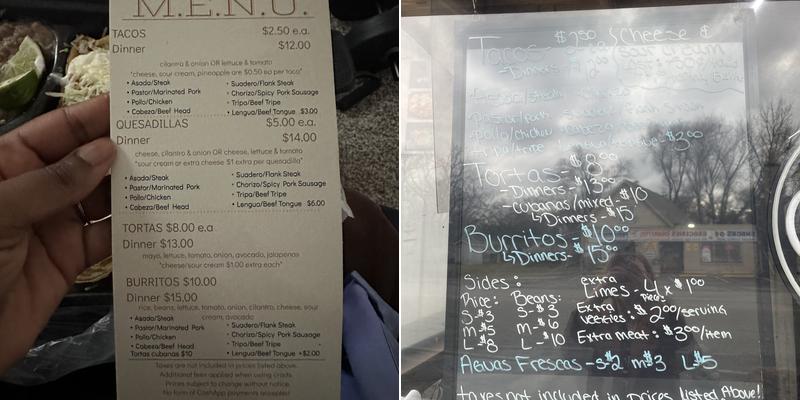 M.E.N.U.
TACOS $2.50 e.a.
Dinner $12.00
cilantro & onion OR lettuce & tomato
"cheese, sour cream, pineapple are $0.50 ea per taco"
• Asada/Steak • Suadero/Flank Steak
• Pastor/Marinated Pork • Chorizo/Spicy Pork Sausage
• Pollo/Chicken • Tripa/Beef Tripe
• Cabeza/Beef Head • Lengua/Beef Tongue $3.00
QUESADILLAS $5.00 e.a.
Dinner $14.00
cheese, cilantro & onion OR cheese, lettuce & tomato
"sour cream or extra cheese $1 extra per quesadilla"
• Asada/Steak • Suadero/Flank Steak
• Pastor/Marinated Pork • Chorizo/Spicy Pork Sausage
• Pollo/Chicken • Tripa/Beef Tripe
• Cabeza/Beef Head • Lengua/Beef Tongue $6.00
TORTAS $8.00 e.a
Dinner $13.00
mayo, lettuce, tomato, onion, avocado, jalapenos
"cheese/sour cream $1.00 extra each"
BURRITOS $10.00
Dinner $15.00
rice, beans, lettuce, tomato, onion, cilantro, cheese, sour
cream, avocado
• Asada/Steak • Suadero/Flank Steak
• Pastor/Marinated Pork • Chorizo/Spicy Pork Sausage
• Pollo/Chicken • Tripa/Beef Tripe
• Cabeza/Beef Head • Lengua/Beef Tongue +$2.00
Tortas cubanas $10
Taxes are not included in prices listed above.
Additional fees applied when using cards.
Prices subject to change without notice.
No form of CashApp payments accepted
Tacos- $2.50 Cheese &
Sour cream
-Dinners-
Pastor/Pork
Pollo/chicken
$3.00
Tortas-$8.00
-Dinners-$13.00
-cubanas/mixed-$10
↳Dinners-$15
Burritos-$10.00
↳Dinners-$15.00
Sides:
Rice: Beans:
S-$3 S-$3
M-$5 M-$6
L-$8 L-$10
extra
Limes-4 pieces x $1.00
Extra
veggies: $2.00/serving
Extra meat: $3.00/item
Aguas Frescas-S$2 M$3 L$5
taxes not included in prices listed Above!